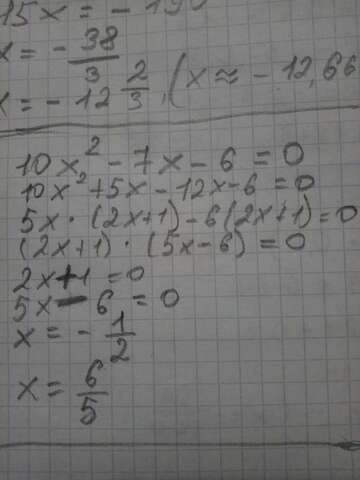 15x = - 190
x = - 38/3
x = - 12 2/3, (x ≈ - 12,66
10x² - 7x - 6 = 0
10x² + 5x - 12x - 6 = 0
5x · (2x+1) - 6(2x+1) = 0
(2x+1) · (5x-6) = 0
2x+1 = 0
5x - 6 = 0
x = - 1/2
x = 6/5